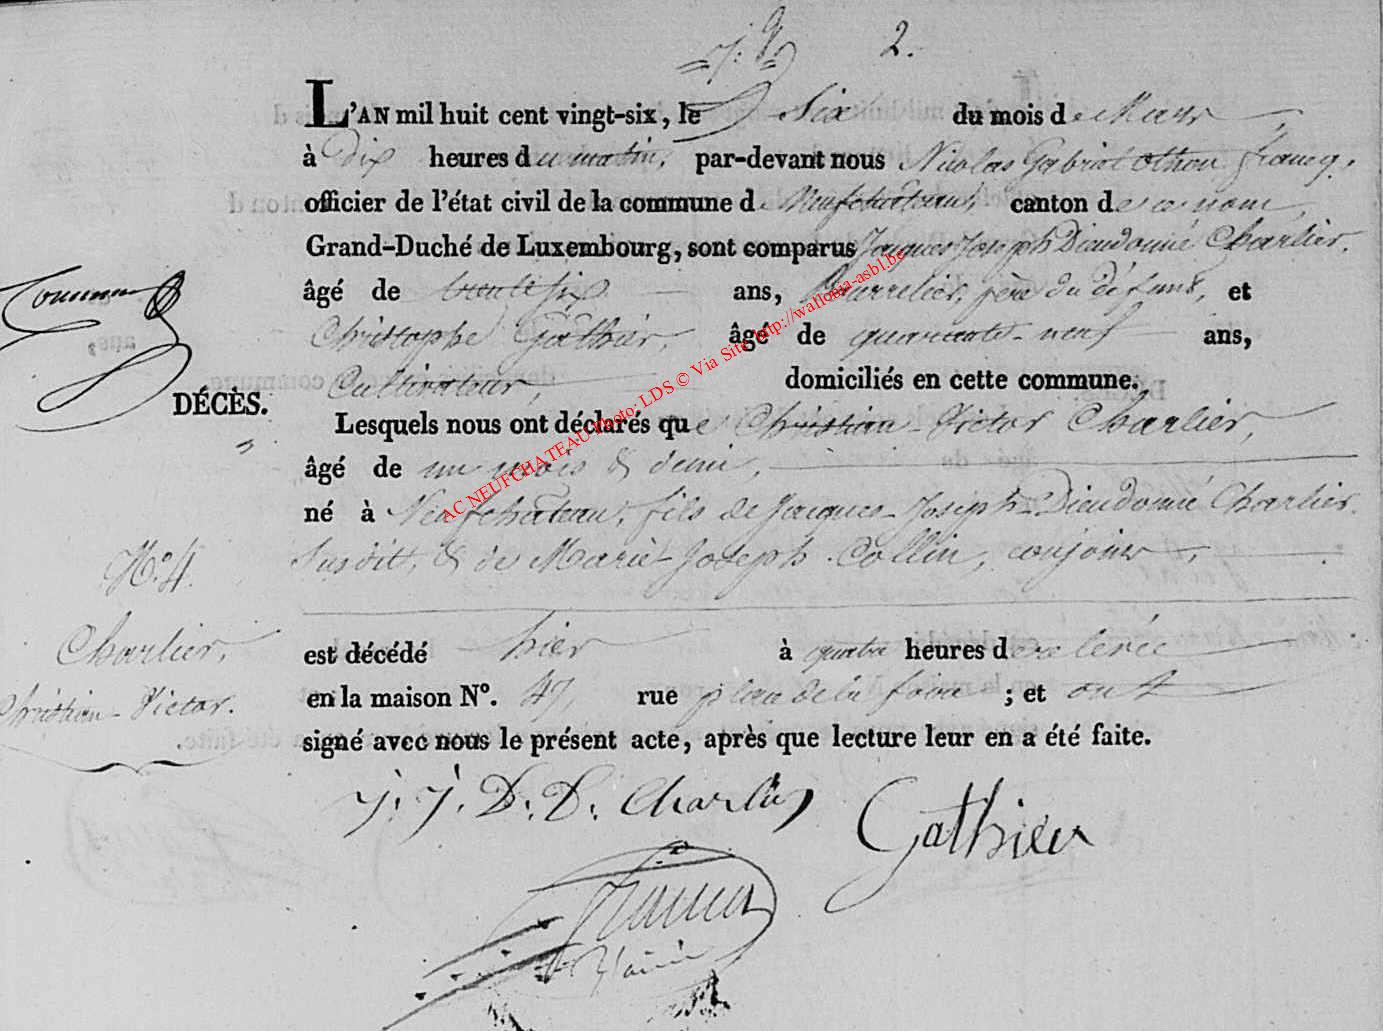 2.
L'AN mil huit cent vingt-six, le Six du mois de Mars
à Dix heures du matin, par-devant nous Nicolas Gabriel Othon Francq,
officier de l'état civil de la commune de Neufchateau, canton de ce nom
Grand-Duché de Luxembourg, sont comparus Jacques Joseph Dieudonné Charlier,
âgé de trente six ans, Bourrelier, père du défunt, et
Christophe Gathier, âgé de quarante-neuf ans,
Cultivateur, domiciliés en cette commune.
DÉCÈS.
Lesquels nous ont déclarés que Christian-Victor Charlier,
âgé de un mois & demi,
né à Neufchateau, fils de Jacques-Joseph-Dieudonné Charlier
Susdit, & de Marie-Joseph Collin, conjoins
N.° 4.
Charlier,
Christian-Victor.
est décédé hier à quatre heures de relevée
en la maison N°. 47, rue place de la foire ; et ont
signé avec nous le présent acte, après que lecture leur en a été faite.
J. J. D. D. Charlier
Gathier
Francq
AC NEUFCHATEAU Photo: LDS © Via Site http://wallonia-asbl.be